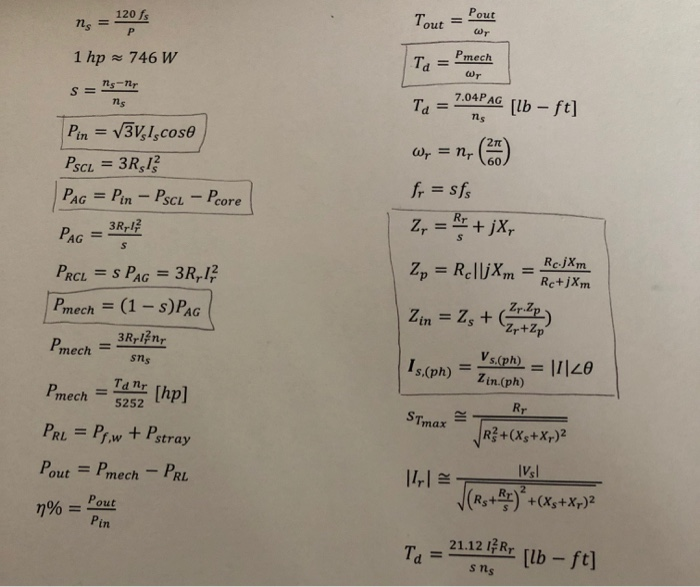 n_s = 120 f_s / P
1 hp ≈ 746 W
s = n_s−n_r / n_s
P_in = √3V_sI_scosθ
P_SCL = 3R_sI_s^2
P_AG = P_in − P_SCL − P_core
P_AG = 3R_rI_r^2 / s
P_RCL = s P_AG = 3R_rI_r^2
P_mech = (1 − s)P_AG
P_mech = 3R_rI_r^2n_r / sn_s
P_mech = T_d n_r / 5252 [hp]
P_RL = P_f,w + P_stray
P_out = P_mech − P_RL
η% = P_out / P_in
T_out = P_out / ω_r
T_d = P_mech / ω_r
T_d = 7.04P_AG / n_s [lb − ft]
ω_r = n_r (2π / 60)
f_r = sf_s
Z_r = R_r / s + jX_r
Z_p = R_c||jX_m = R_c.jX_m / R_c+jX_m
Z_in = Z_s + (Z_r.Z_p / Z_r+Z_p)
I_s,(ph) = V_s,(ph) / Z_in,(ph) = |I|∠θ
s_Tmax ≅ R_r / √R_s^2+(X_s+X_r)^2
|I_r| ≅ |V_s| / √(R_s+R_r/s)^2+(X_s+X_r)^2
T_d = 21.12 I_r^2R_r / s n_s [lb − ft]